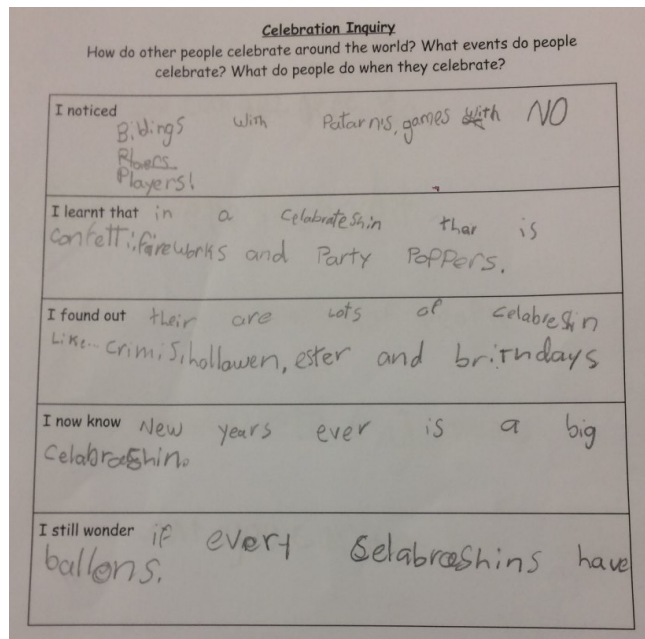 Celebration Inquiry
How do other people celebrate around the world? What events do people
celebrate? What do people do when they celebrate?
I noticed
Bildings with Patarns, games with NO
Players!
I learnt that in a celabrateshin thar is
confetti, fireworks and Party Poppers.
I found out their are Lots of celabreshin
Like... crimis, hollowen, ester and brithdays
I now know New years ever is a big
celabraeshin.
I still wonder if evert selabraeshins have
ballons.